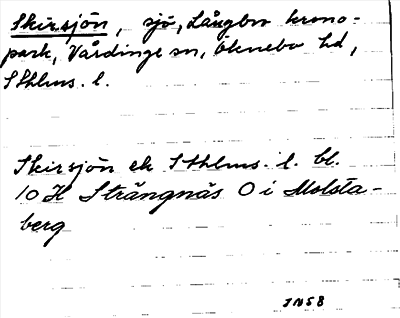 Skirsjön, sjö, Långbro krono-
park, Vårdinge sn, Öknebo hd,
Sthlms. l.
Skirsjön ek Sthlms. l. bl.
10 H Strängnäs O i Molsta-
berg
JNSB